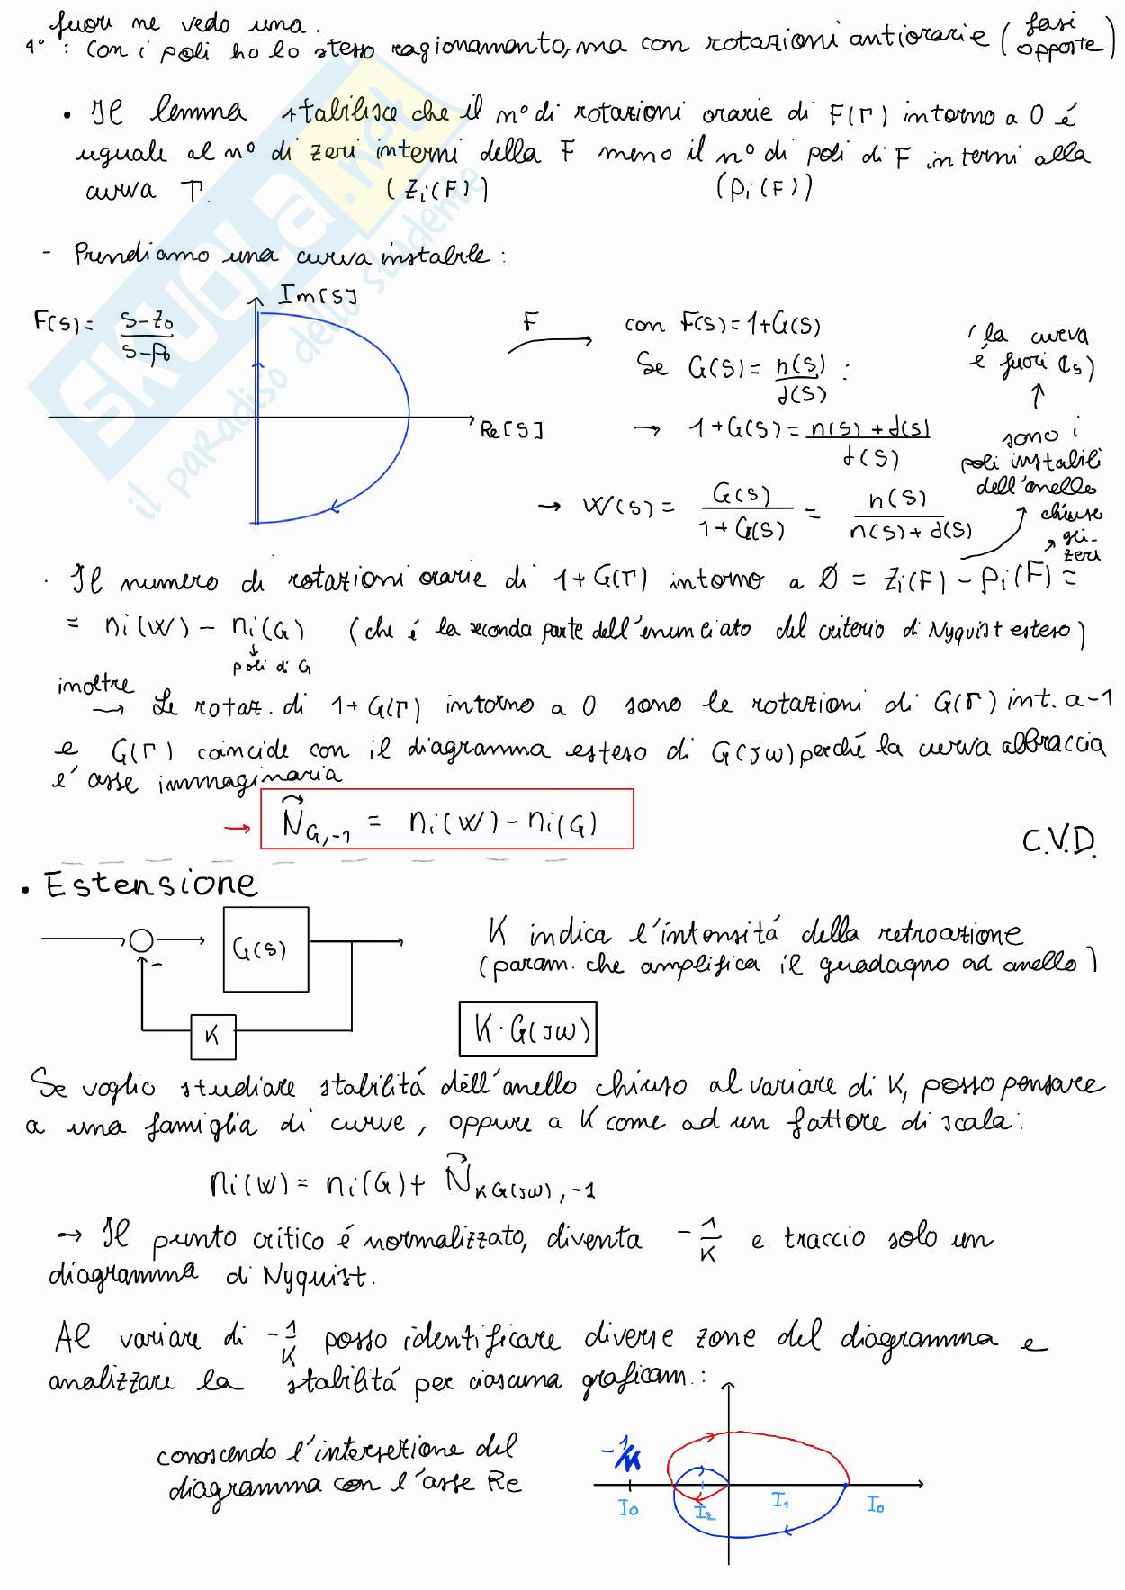 fuori ne vedo una.
4° : Con i poli ho lo stesso ragionamento, ma con rotazioni antiorarie (fasi opposte)
• Il lemma stabilisce che il n° di rotazioni orarie di F(Γ) intorno a 0 é
uguale al n° di zeri interni della F meno il n° di poli di F interni alla
curva Γ. (Zi(F)) (Pi(F))
- Prendiamo una curva instabile :
Im[S]
F(s) = s-z0 / s-p0
F
con F(s)=1+G(s)
(la curva
é fuori Cs)
Se G(s) = n(s) / d(s) :
Re[S]
→ 1+G(s) = n(s)+d(s) / d(s)
sono i
poli instabili
dell'anello
chiuso
gli zeri
→ W(s) = G(s) / 1+G(s) = n(s) / n(s)+d(s)
· Il numero di rotazioni orarie di 1+G(Γ) intorno a 0 = Zi(F) - Pi(F) =
= ni(W) - ni(G) (che é la seconda parte dell'enunciato del criterio di Nyquist esteso)
poli di G
inoltre
→ Le rotaz. di 1+G(Γ) intorno a 0 sono le rotazioni di G(Γ) int. a -1
e G(Γ) coincide con il diagramma esteso di G(jω) perché la curva abbraccia
l'asse immaginaria
→ N G,-1 = ni(W) - ni(G)
C.V.D.
• Estensione
G(s)
-
K
K indica l'intensitá della retroazione
(param. che amplifica il guadagno ad anello)
K·G(jω)
Se voglio studiare stabilitá dell'anello chiuso al variare di K, posso pensare
a una famiglia di curve, oppure a K come ad un fattore di scala:
ni(W) = ni(G) + N KG(jω),-1
→ Il punto critico é normalizzato, diventa -1/K e traccio solo un
diagramma di Nyquist.
Al variare di -1/K posso identificare diverse zone del diagramma e
analizzare la stabilitá per ciascuna graficam.:
conoscendo l'intersezione del
diagramma con l'asse Re
-1/K
I0
I2
I1
I0
SKUOLA.net
il paradiso dello studente